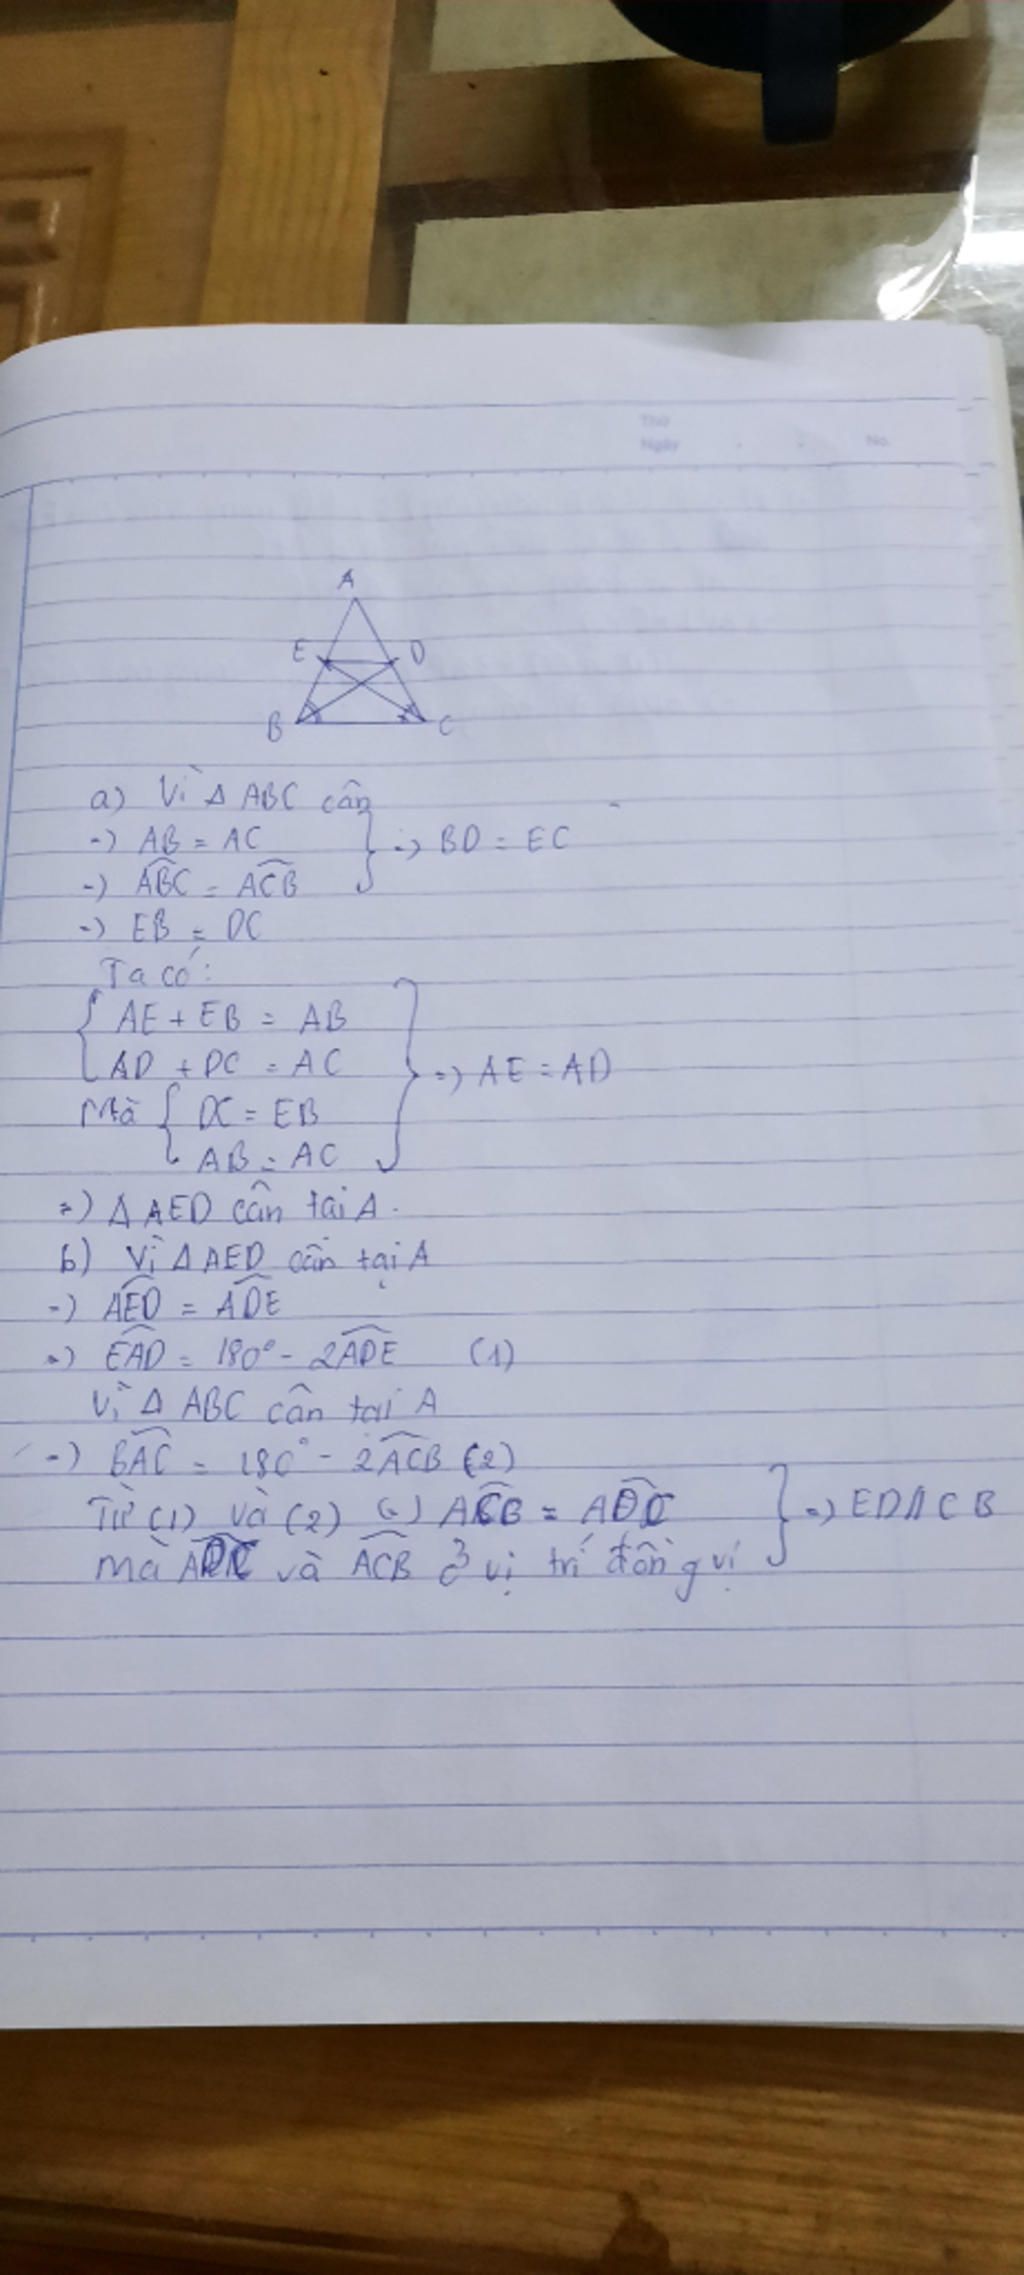 Thứ
Ngày . . No.
A
E D
B C
a) Vì Δ ABC cân
=) AB = AC
=) BD = EC
=) ABC = ACB
=) EB = DC
Ta có:
AE + EB = AB
AD + DC = AC
=) AE = AD
Mà DC = EB
AB = AC
=) Δ AED cân tại A.
b) Vì Δ AED cân tại A
=) AED = ADE
=) EAD = 180° - 2ADE (1)
Vì Δ ABC cân tại A
=) BAC = 180° - 2ACB (2)
Từ (1) và (2) =) ACB =
=) ED
CB
mà và ACB ở vị trí đồng vị